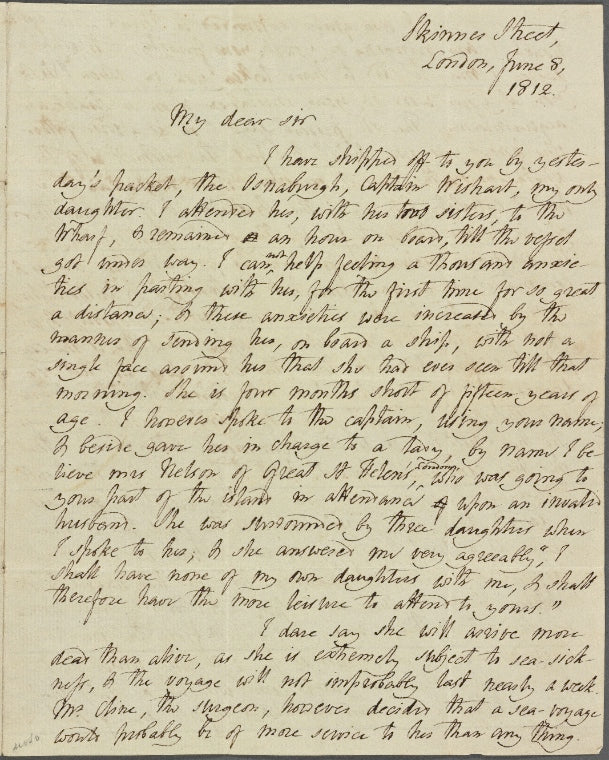 Skinner Street,
London, June 8,
1812.
My dear sir
I have shipped off to you by yester-
day's packet, the Osnaburgh, Captain Wishart, my only
daughter. I attended her, with her two sisters, to the
wharf, & remained an hour on board, till the vessel
got under way. I cannot help feeling a thousand anxie-
ties in parting with her, for the first time, for so great
a distance; & these anxieties were increased by the
manner of sending her, on board a ship, with not a
single face around her that she had ever seen till that
morning. She is four months short of fifteen years of
age. I however spoke to the captain, using your name;
& beside gave her in charge to a lady, by name I be-
lieve mrs Nelson of Great St Helen's, London, who was going to
your part of the island in attendance upon an invalid
husband. She was surrounded by three daughters when
I spoke to her; & she answered me very agreeably, "I
shall have none of my own daughters with me, & shall
therefore have the more leisure to attend to yours."
I dare say she will arrive more
dead than alive, as she is extremely subject to sea-sick-
ness, & the voyage will not improbably last nearly a week.
Mr. Cline, the surgeon, however decides that a sea-voyage
would probably be of more service to her than any thing.